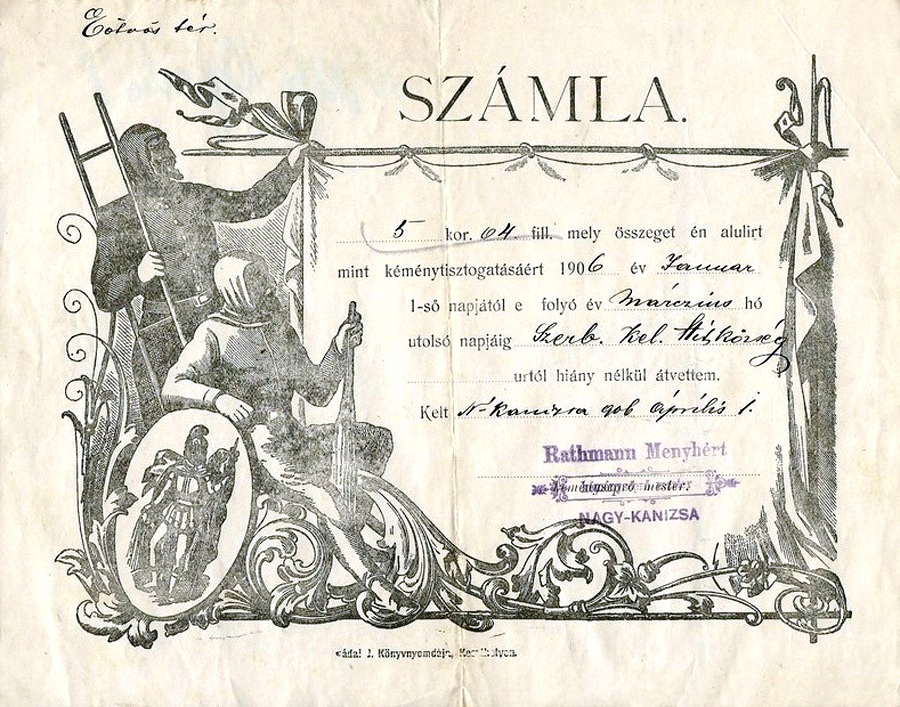 Eötvös tér.
SZÁMLA.
5 kor. 64. fill. mely összeget én alulirt
mint kéménytisztogatásáért 1906 év Januar
1-ső napjától e folyó év Márczius hó
utolsó napjáig Szerb. Kel. Hitközség
urtól hiány nélkül átvettem.
Kelt N-Kanizsa 906 Április 1.
Rathmann Menyhért
kéményseprő mester.
NAGY-KANIZSA
J. Könyvnyomdája, Keszthelyen.